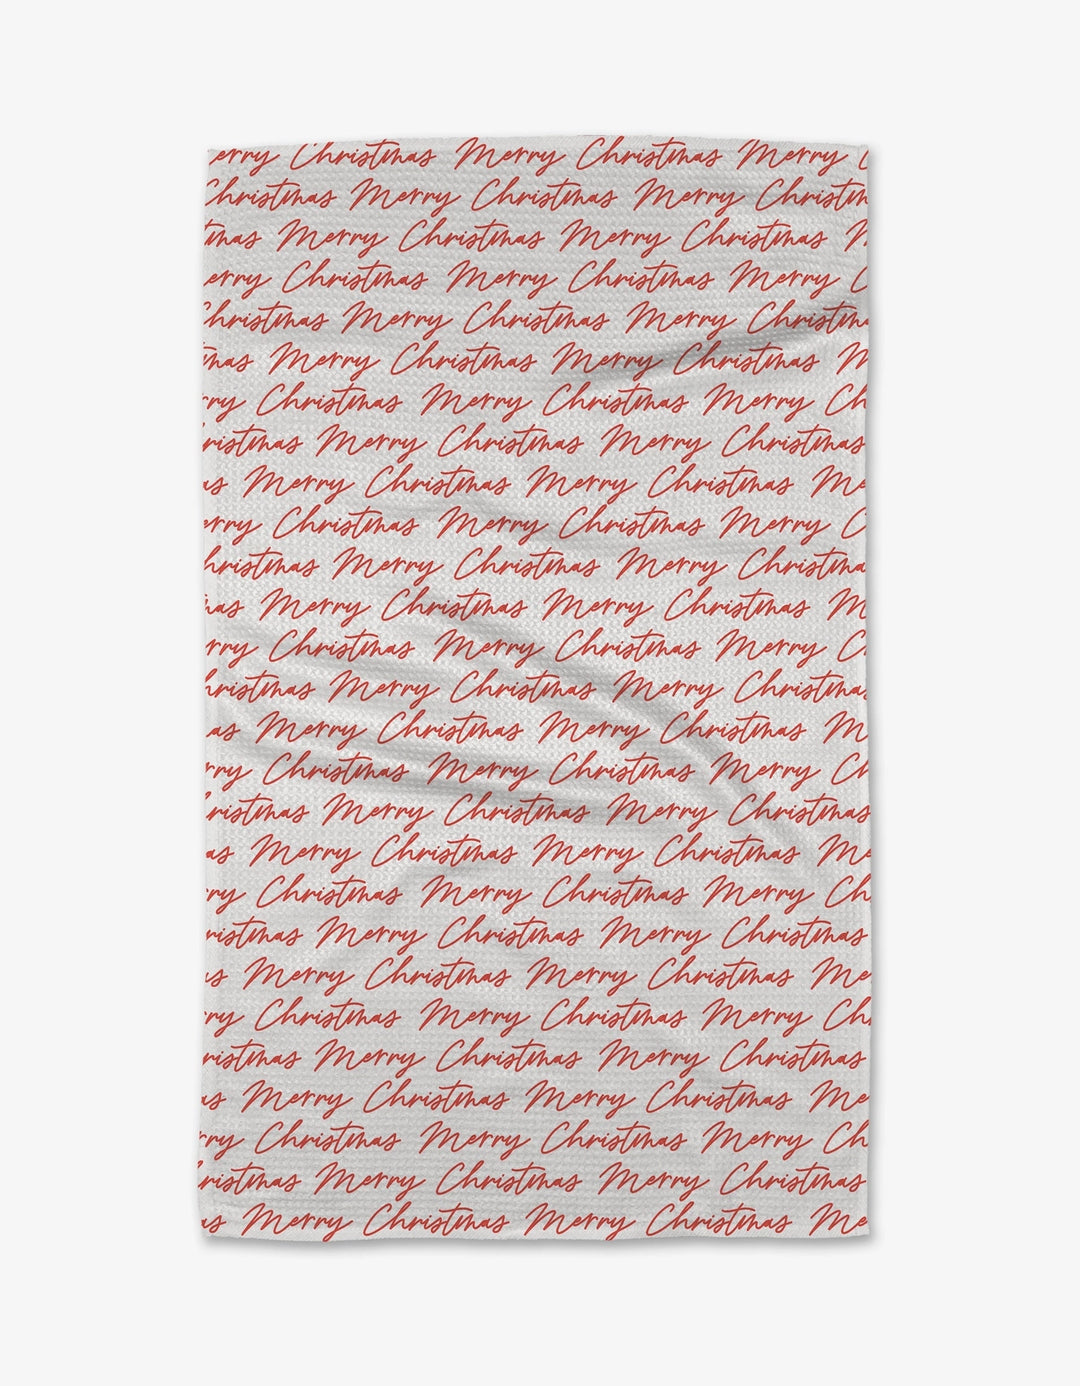 erry Christmas Merry Christmas Merry C
Christmas Merry Christmas Merry Christm
tmas Merry Christmas Merry Christmas M
erry Christmas Merry Christmas Merry C
Christmas Merry Christmas Merry Christma
mas Merry Christmas Merry Christmas M
rry Christmas Merry Christmas Merry Ch
ristmas Merry Christmas Merry Christmas
as Merry Christmas Merry Christmas Me
erry Christmas Merry Christmas Merry C
hristmas Merry Christmas Merry Christma
mas Merry Christmas Merry Christmas M
rry Christmas Merry Christmas Merry C
hristmas Merry Christmas Merry Christmas
as Merry Christmas Merry Christmas M
rry Christmas Merry Christmas Merry Ch
ristmas Merry Christmas Merry Christmas
as Merry Christmas Merry Christmas Me
ry Christmas Merry Christmas Merry Ch
ristmas Merry Christmas Merry Christmas
as Merry Christmas Merry Christmas Me
ry Christmas Merry Christmas Merry Ch
ristmas Merry Christmas Merry Christmas
as Merry Christmas Merry Christmas Me
rry Christmas Merry Christmas Merry Ch
ristmas Merry Christmas Merry Christmas
as Merry Christmas Merry Christmas Me